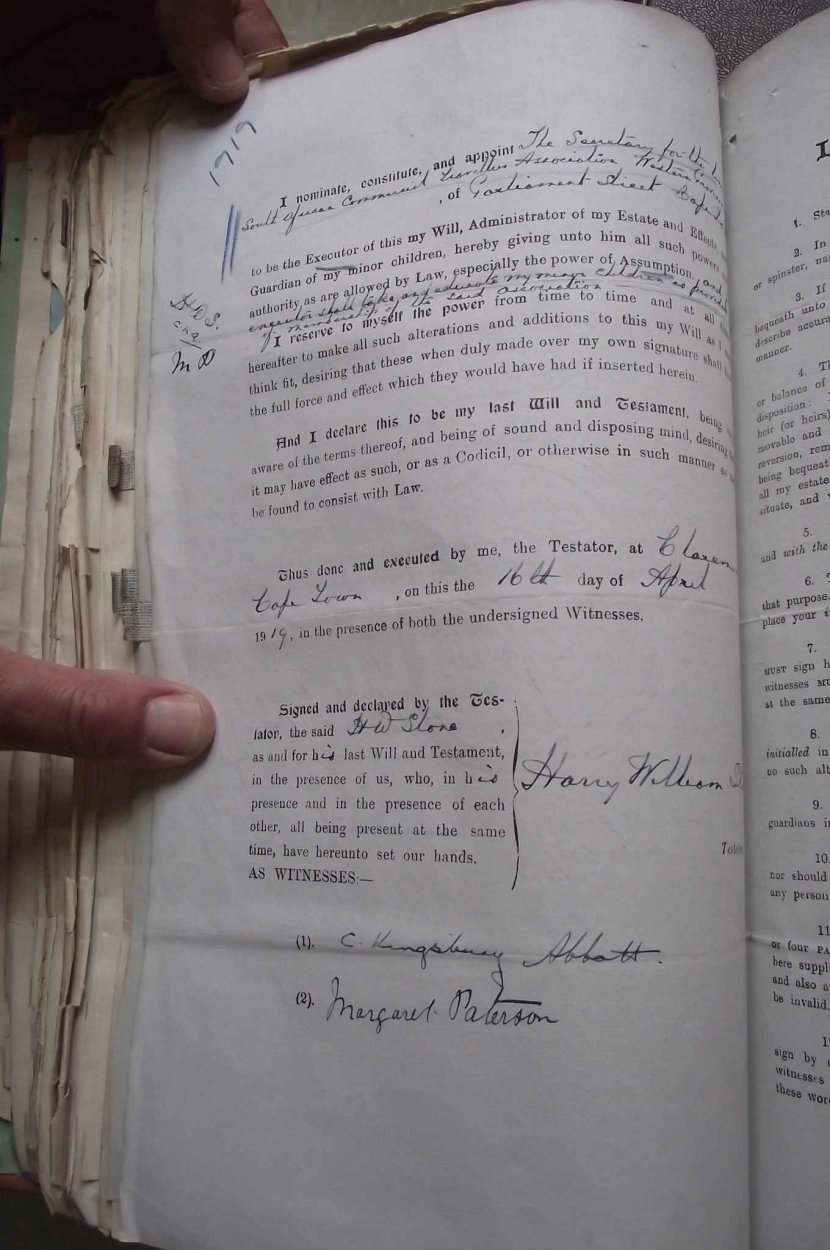 1919
I nominate, constitute, and appoint The Secretary for the
South African Commercial Travellers Association Western
, of Parliament Street Cape
to be the Executor of this my Will, Administrator of my Estate and Effects
Guardian of my minor children, hereby giving unto him all such powers
authority as are allowed by Law, especially the power of Assumption, and
executor shall take and educate my minor children as provided
of membership of the said association
H.W.S.
M P
I reserve to myself the power from time to time and at all
hereafter to make all such alterations and additions to this my Will as I
think fit, desiring that these when duly made over my own signature shall
the full force and effect which they would have had if inserted herein.
And I declare this to be my last Will and Testament, being
aware of the terms thereof, and being of sound and disposing mind, desiring
it may have effect as such, or as a Codicil, or otherwise in such manner as
be found to consist with Law.
Thus done and executed by me, the Testator, at
Cape Town , on this the 16th day of April
1919, in the presence of both the undersigned Witnesses.
Signed and declared by the Tes-
tator, the said H W Stone ,
as and for his last Will and Testament,
in the presence of us, who, in his
presence and in the presence of each
other, all being present at the same
time, have hereunto set our hands.
AS WITNESSES:—
Harry William
(1). C. Kingsbury Abbott.
(2). Margaret Paterson
1. Sta
2. In
or spinster, na
3. If
bequeath unto
describe accura
manner.
4. Th
or balance of
disposition:
heir (or heirs)
movable and
reversion, rem
being bequeat
all my estate
situate, and
5.
and with the
6.
that purpose.
place your
7.
MUST sign h
witnesses MU
at the same
8.
initialled in
no such alt
9.
guardians i
10.
nor should
any person
11
or four PA
here suppl
and also a
be invalid.
sign by
witnesses
these wor